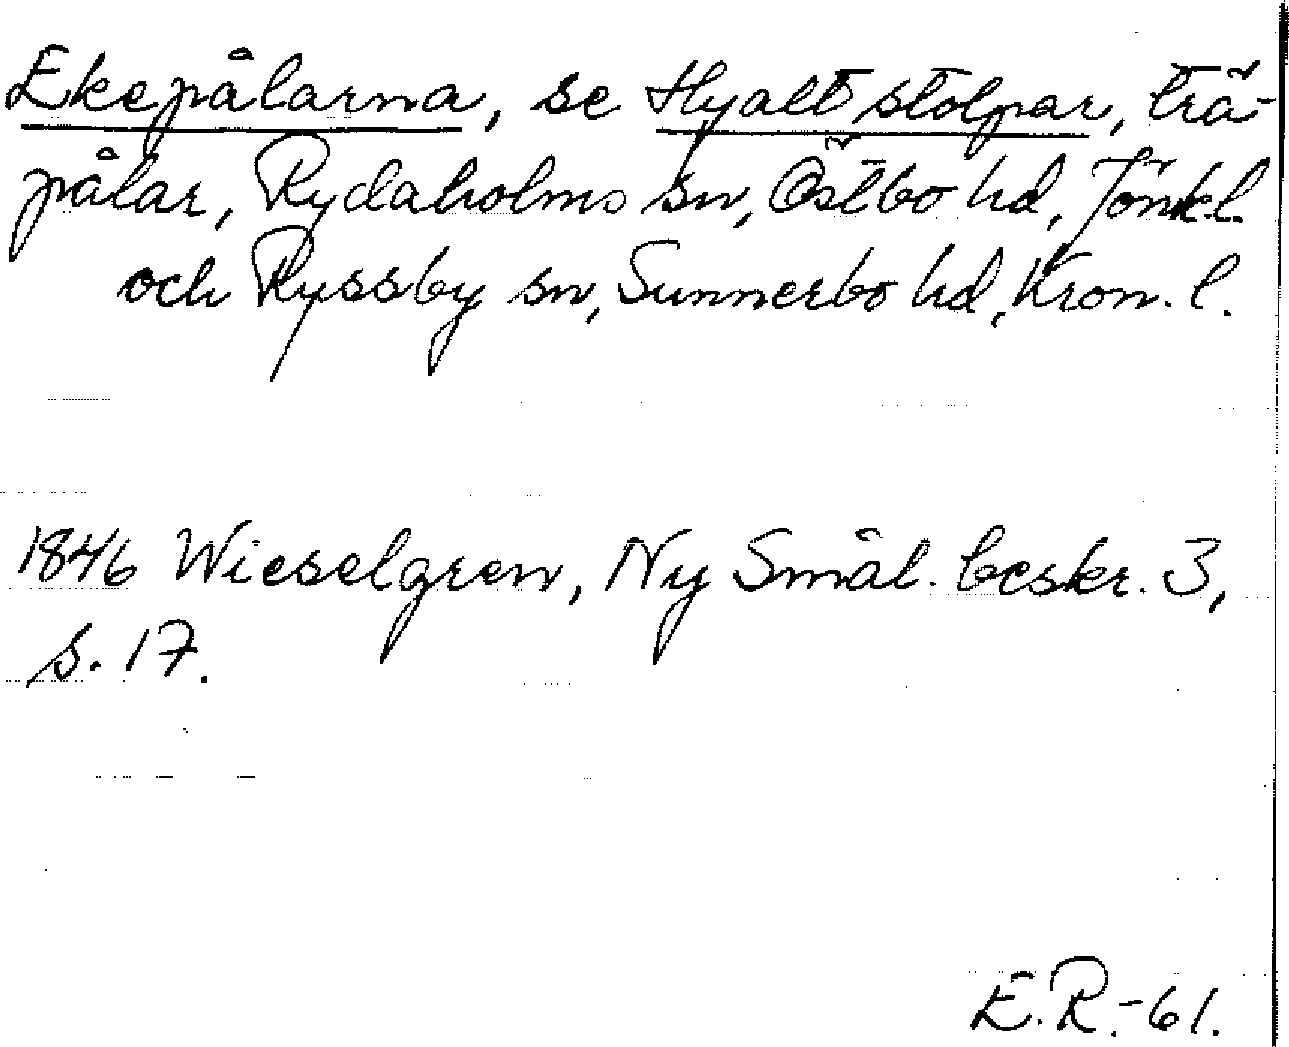 Ekepålarna, se Hyalt stolpar, trä-
pålar, Rydaholms sn, Östbo hd, Jönk.l.
och Ryssby sn, Sunnerbo hd, Kron. l.
1846 Wieselgren, Ny Smål. beskr. 3,
s. 17.
E.R.-61.